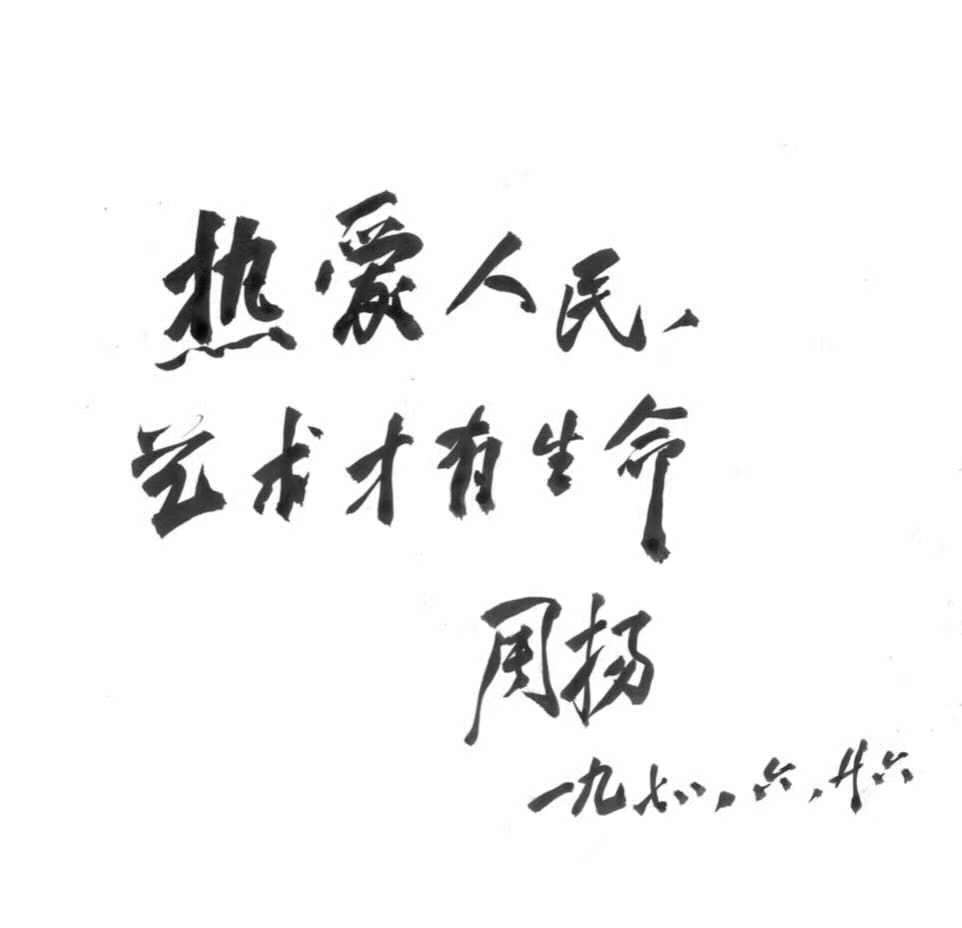 热爱人民、
艺术才有生命
周扬
一九七八、六、廿六